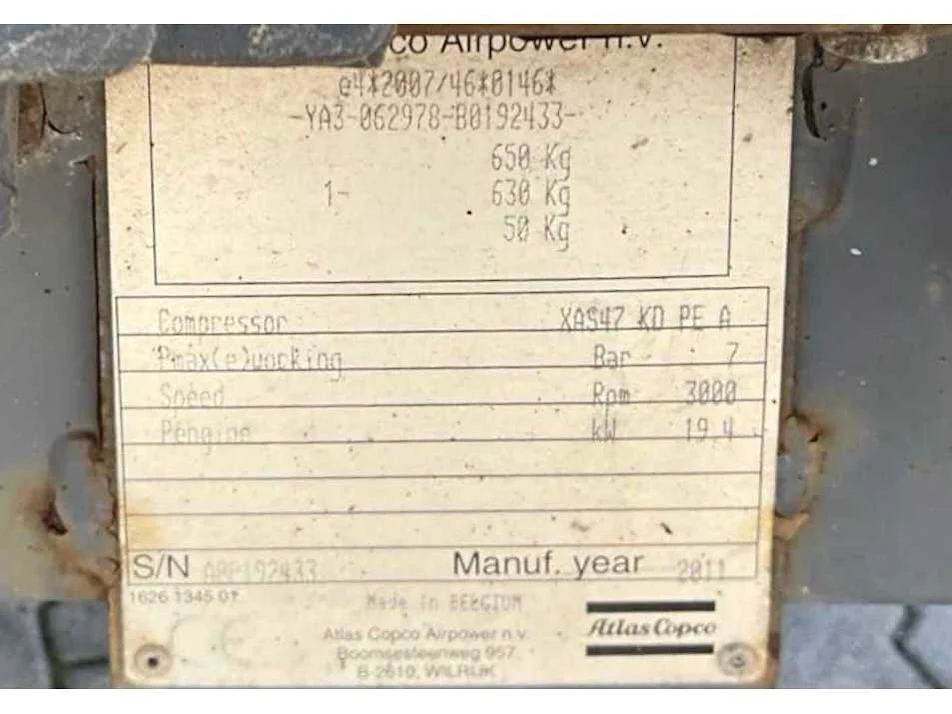 co Airpower n.v.
e4*2007/46*0146*
-YA3-062978-B0192433-
650 Kg
1- 630 Kg
50 Kg
Compressor XAS47 KD PE A
Pmax(e)working Bar 7
Speed Rpm 3000
Pengine kW 19.4
S/N APP192433 Manuf. year 2011
1626 1345 01
Made in BELGIUM
CE
Atlas Copco Airpower n.v.
Boomsesteenweg 957
B-2610, WILRIJK
Atlas Copco